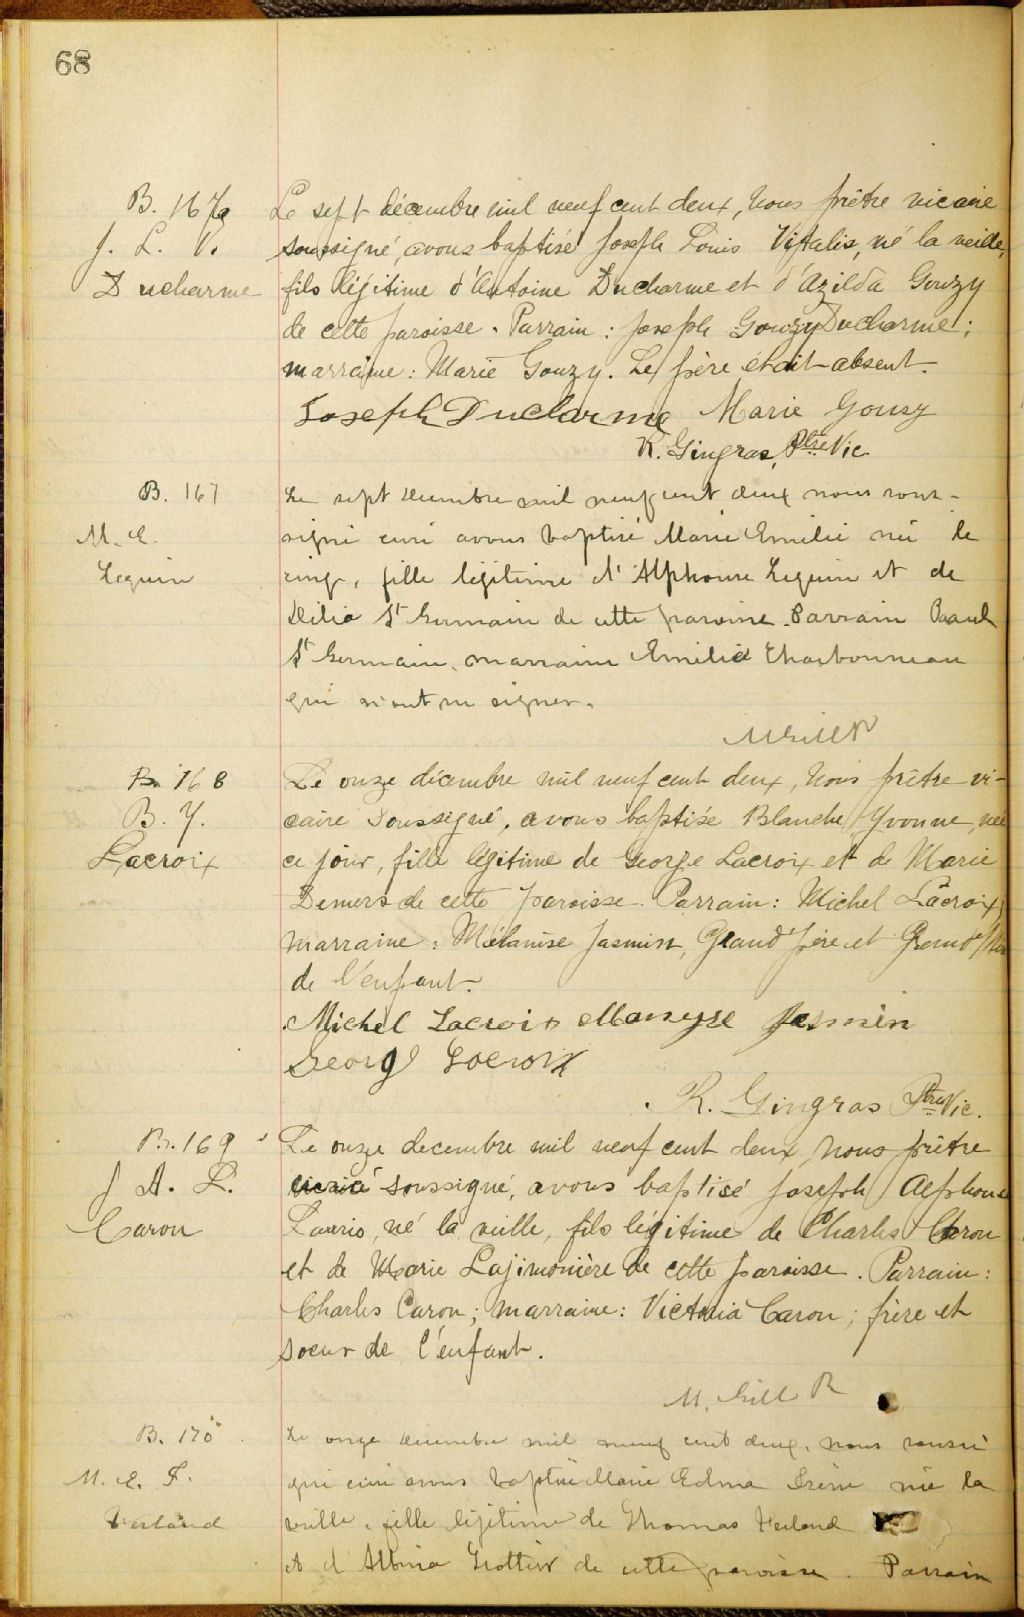 68
B. 167a
J. L. V.
Ducharme
Le sept décembre mil neuf cent deux, nous prêtre vicaire
soussigné, avons baptisé Joseph Louis Vitalis, né la veille,
fils légitime d'Antoine Ducharme et d'Azilda Gouzy
de cette paroisse. Parrain : Joseph Gouzy Ducharme ;
marraine : Marie Gouzy. Le père était absent.
Joseph Ducharme Marie Gouzy
R. Gingras, Ptre Vic.
B. 167
M. E.
Lequin
Le sept décembre mil neuf cent deux nous sous-
signé curé avons baptisé Marie Emélie née le
cinq, fille légitime d'Alphonse Lequin et de
Délia St Germain de cette paroisse. Parrain
St Germain, marraine Emélie Charbonneau
qui n'ont su signer.
B. 168
B. Y.
Lacroix
Le onze décembre mil neuf cent deux, nous prêtre vi-
caire soussigné, avons baptisé Blanche Yvonne, née
ce jour, fille légitime de George Lacroix et de Marie
Demers de cette paroisse. Parrain : Michel Lacroix ;
marraine : Mélanise Jasmin, Grand père et Grand'
de l'enfant.
Michel Lacroix Jasmin
Georg Lacroix
R. Gingras Ptre Vic.
B. 169
J. A. L.
Caron
Le onze decembre mil neuf cent deux, nous prêtre
soussigné, avons baptisé Joseph Alphonse
né la veille, fils légitime de Charles Caron
et de Marie Lajimonière de cette paroisse. Parrain :
Charles Caron ; marraine : Victoria Caron ; frère et
soeur de l'enfant.
M. Gill
B. 170
M. E. I.
Verland
Le onze décembre mil neuf cent deux, nous soussi
gné curé avons baptisé Marie Edma Irène née la
veille, fille légitime de Thomas
et d'Albina Trottier de cette paroisse. Parrain